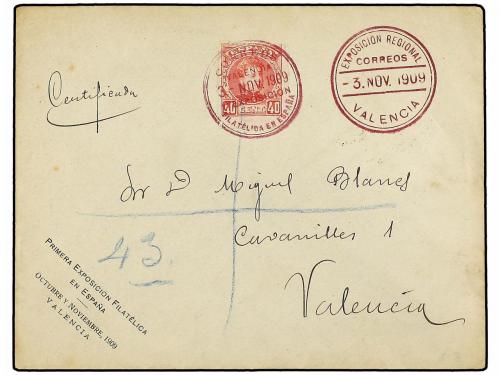 Certificada
CORREOS
VALENCIA
3. NOV. 1909
EXPOSICIÓN
FILATÉLICA EN ESPAÑA
40 CENT. 40
EXPOSICIÓN REGIONAL
CORREOS
- 3. NOV. 1909
VALENCIA
Sr D Miguel Blanes
Cavanilles 1
Valencia
43
PRIMERA EXPOSICIÓN FILATÉLICA
EN ESPAÑA
OCTUBRE Y NOVIEMBRE, 1909
VALENCIA